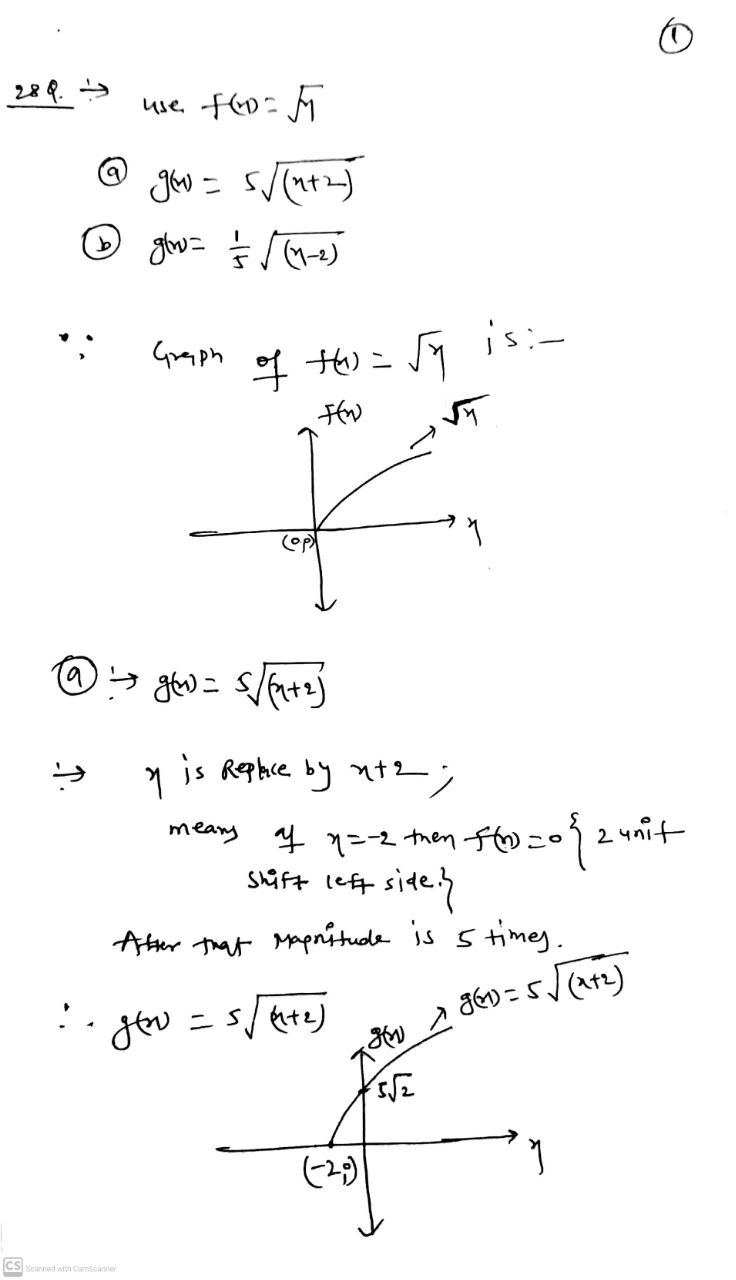 ①
28 Q. ÷→ use f(x) = √x
ⓐ g(x) = 5√(x+2)
ⓑ g(x) = 1/5 √(x-2)
∵ Graph of f(x) = √x is :-
f(x)
√x
(0,0)
x
ⓐ ÷→ g(x) = 5√(x+2)
÷→ x is Replace by x+2 ;
means if x=-2 then f(x) = 0 { 2 unit
shift left side. }
After that Magnitude is 5 times.
∴ g(x) = 5√(x+2)
g(x) = 5√(x+2)
g(x)
5√2
(-2,0)
x
CS Scanned with CamScanner